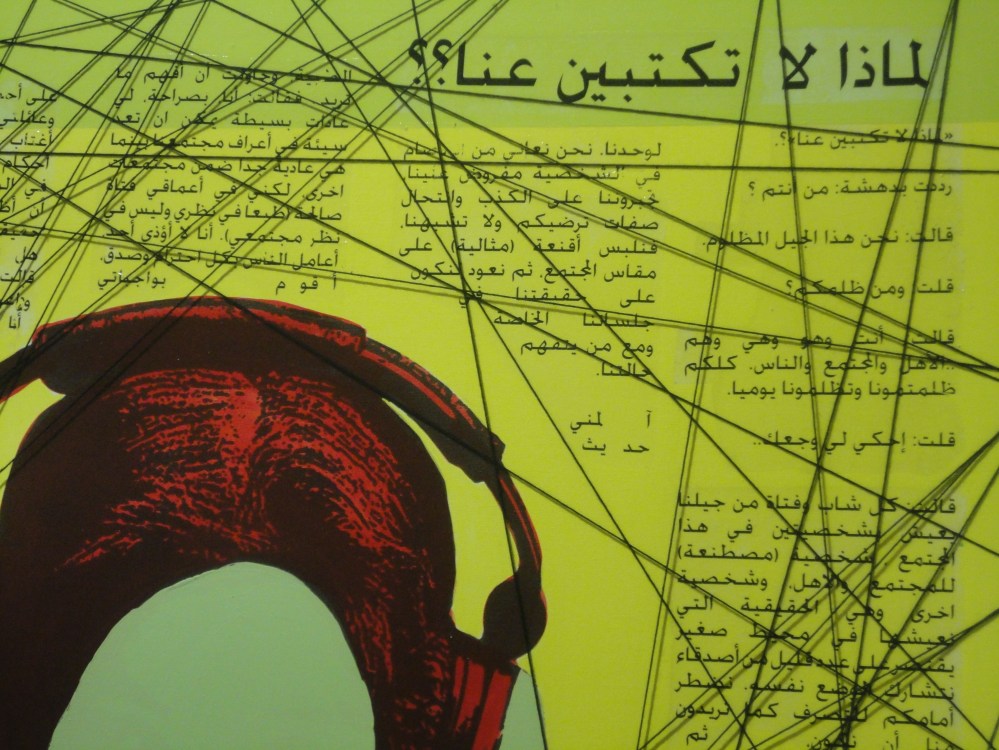 لماذا لا تكتبين عنا؟؟
«لماذا لا تكتبين عنا»؟.
ردت بدهشة: من أنتم ؟
قالت: نحن هذا الجيل المظلوم.
قلت: ومن ظلمكم؟
قالت: أنت وهو وهي وهم
..الأهل والمجتمع والناس. كلكم
ظلمتمونا وتظلمونا يوميا.
قلت: إحكي لي وجعك..
قالت: كل شاب وفتاة من جيلنا
يعيش بشخصيتين في هذا
المجتمع شخصية (مصطنعة)
للمجتمع والأهل. وشخصية
اخرى وهي الحقيقية التي
نعيشها في محيط صغير
يقتصر على عدد قليل من أصدقاء
نتشارك الوضع نفسه. نضطر
أمامكم للتصرف كما تريدون
منا أن ثم
لوحدنا. نحن نعاني من
في الشخصية مفروض علينا
تجبروننا على الكذب وانتحال
صفات ترضيكم ولا تشبهنا.
فنلبس أقنعة (مثالية) على
مقاس المجتمع. ثم نعود لنكون
على حقيقتنا في
جلساتنا الخاصة
ومع من يتفهم
حالتنا.
آ لمني
حد يث
ان أفهم ما
تريد. فقالت: أنا بصراحة. لي
عادات بسيطة يمكن ان تعد
سيئة في أعراف مجتمعنا بينما
هي عادية جدا ضمن مجتمعات
اخرى. لكني في أعماقي فتاة
صالحة (طبعا في نظري وليس في
نظر مجتمعي). أنا لا أؤذي أحد
أعامل الناس بكل احترام وصدق.
أ قو م بواجباتي
على
أحكام
في
ان
هل
قالت
أنا